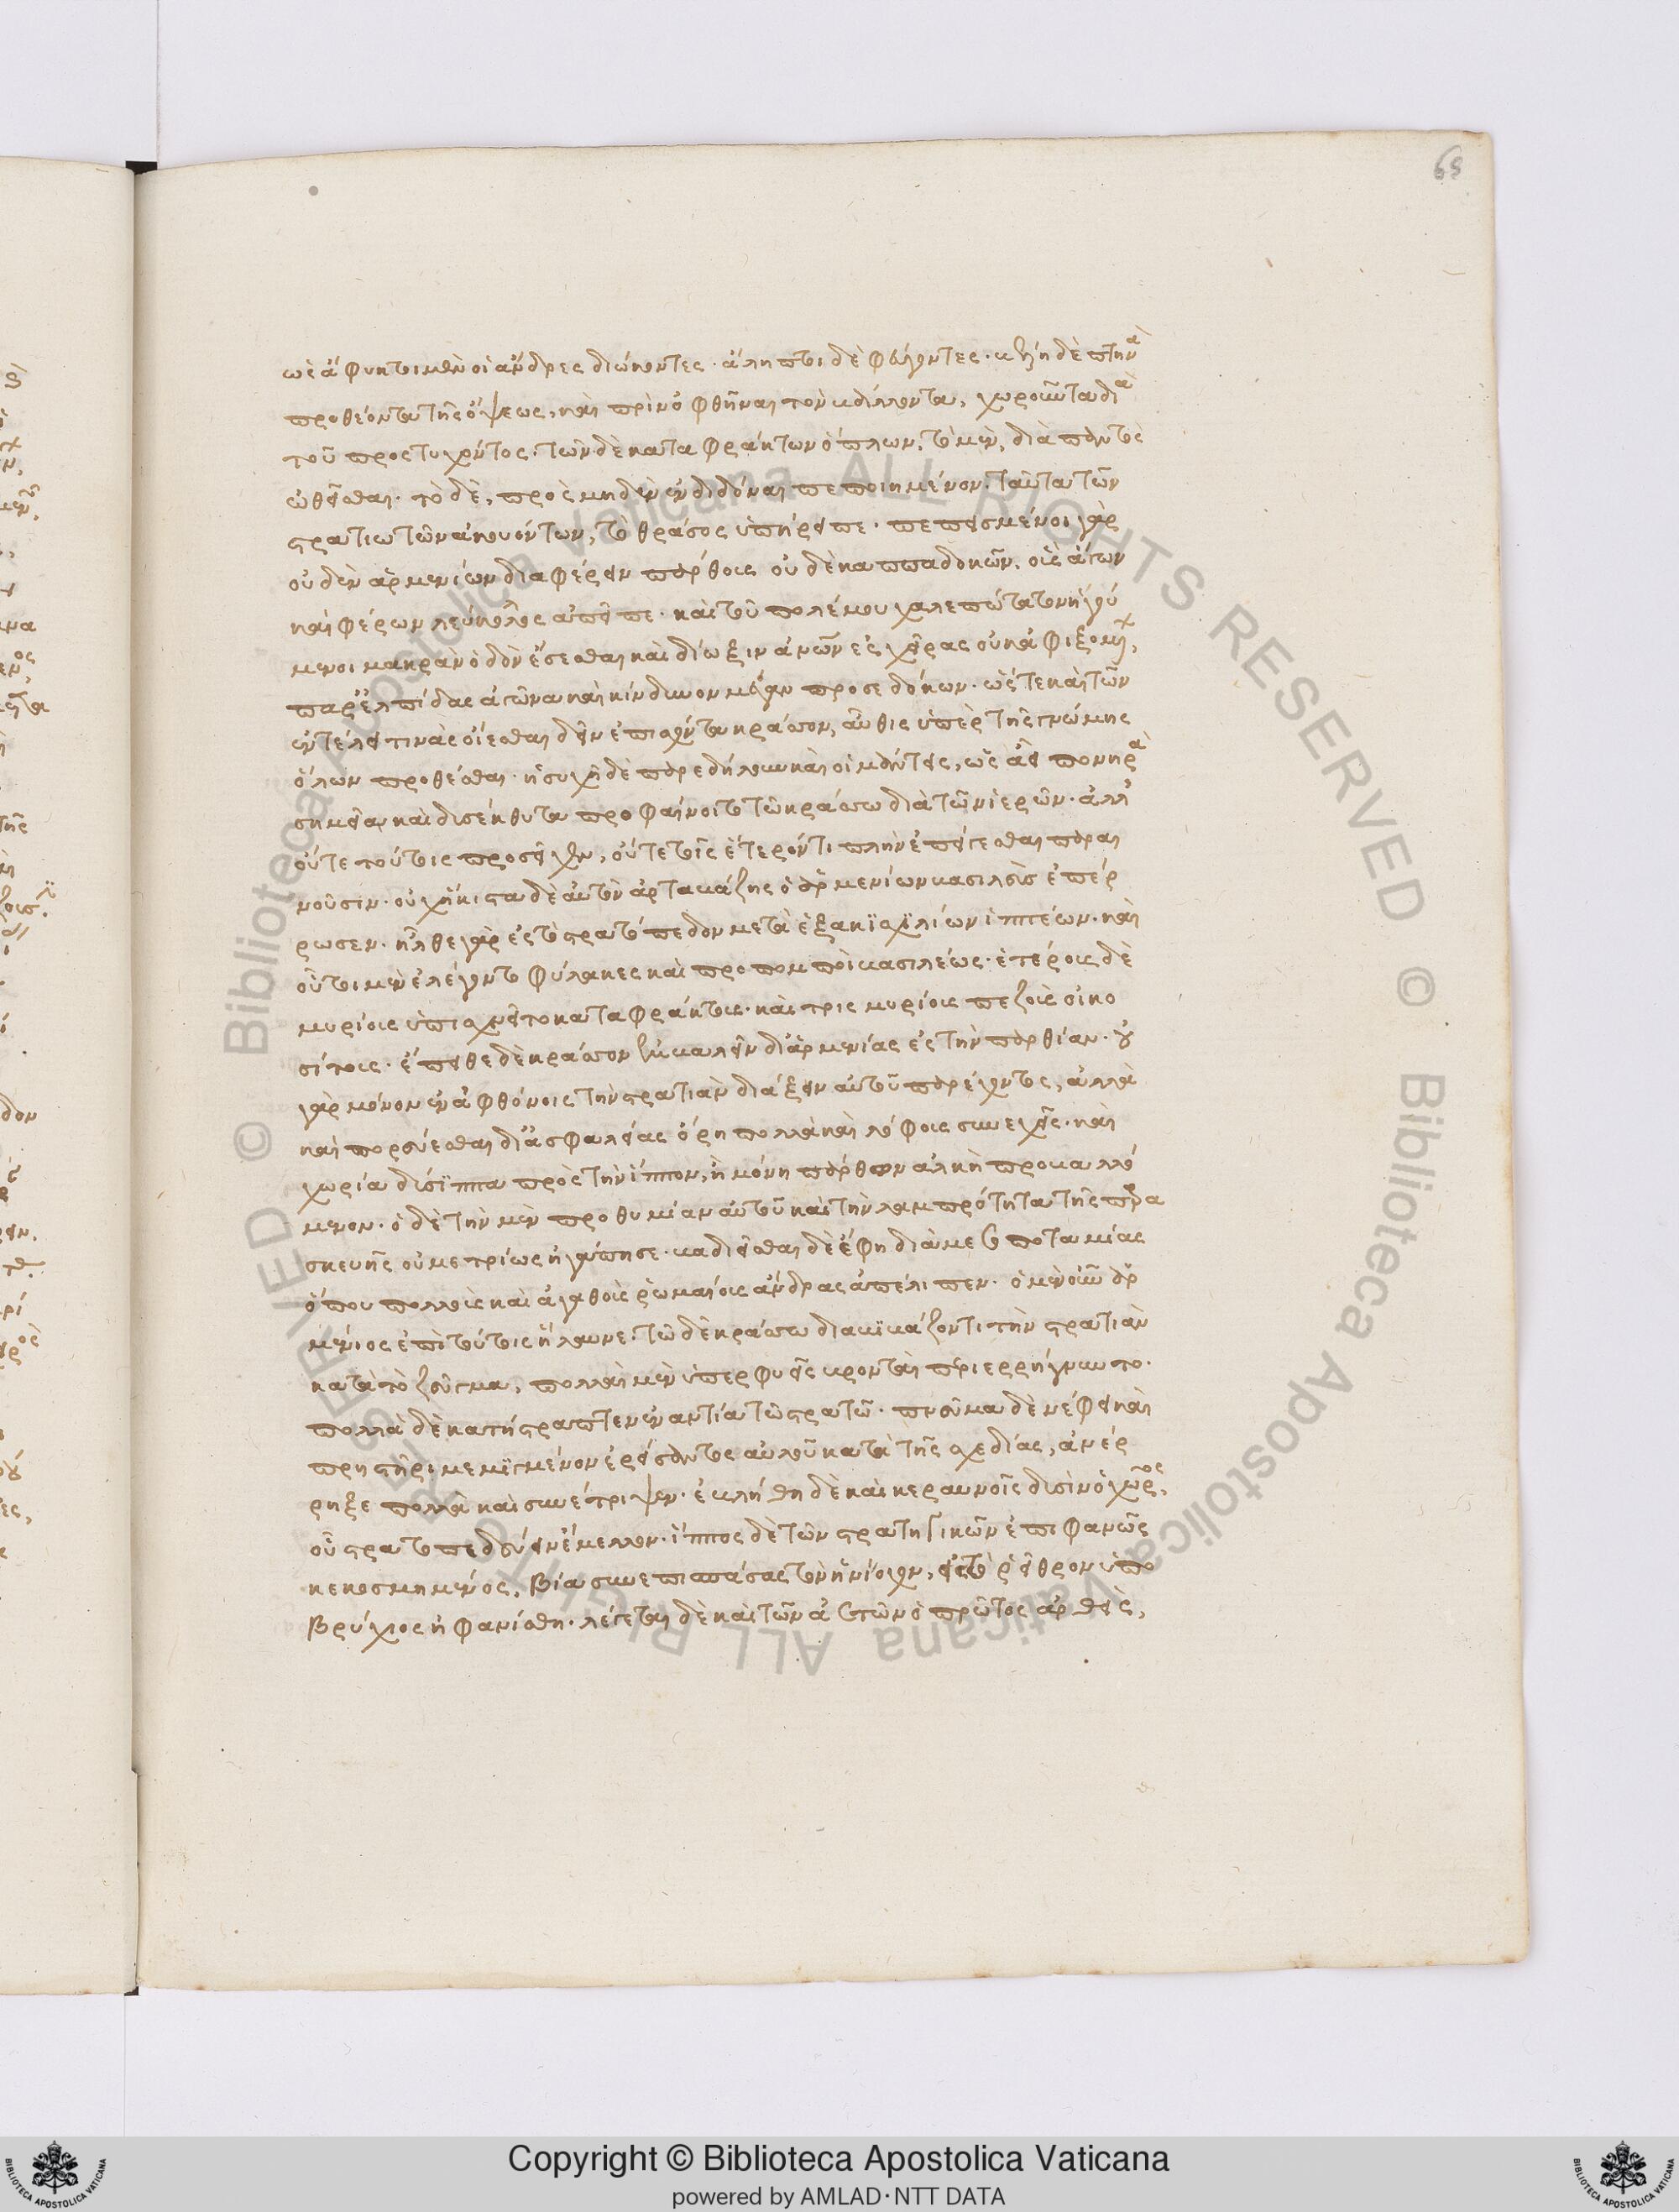 ὡς ἄφυκτοι μὲν οἱ ἄνδρες διώκοντες· ἄληπτοι δὲ φεύγοντες· βέλη δὲ πτηνὰ
προθέοντα τῆς ὄψεως, καὶ πρὶν ὀφθῆναι τὸν βάλλοντα, χωροῦντα διὰ
τοῦ προστυχόντος· τῶν δὲ καταφράκτων ὅπλων, τὸ μὲν, διὰ παντὸς
ὠθεῖσθαι· τὸ δὲ, πρὸς μηδὲν ἐνδιδόναι πεποιημένον. ταῦτα τῶν
στρατιωτῶν ἀκουόντων, τὸ θράσος ὑπήρειπε· πεπεισμένοι γὰρ
οὐδὲν ἀρμενίων διαφέρειν πάρθους οὐδὲ καππαδοκῶν, οὓς ἄγων
καὶ φέρων λεύκολλος ἀπεῖπε· καὶ τοῦ πολέμου χαλεπώτατον ἡγού
μενοι μακρὰν ὁδὸν ἔσεσθαι καὶ δίωξιν ἀνῶν εἰς χεῖρας οὐκ ἀφιξομένων,
παρ' ἐλπίδας ἀγῶνα καὶ κίνδυνον μέγαν προσεδόκων· ὥστε καὶ τῶν
ἐν τέλει τινὰς οἴεσθαι δεῖν ἐπισχόντα κράσσον, αὖθις ὑπὲρ τῆς γνώμης
ὅλων προθέσθαι· ἡσυχῆ δὲ παρεδήλουν καὶ οἱ μάντεις, ὡς ἀεὶ πονηρὰ
σημεῖα καὶ δυσέκθυτα προφαίνοιτο τῶ κράσσω διὰ τῶν ἱερῶν· ἀλλ'
οὔτε τούτοις προσεῖχεν, οὔτε τοῖς ἕτερόν τι πλὴν ἐπείγεσθαι παραι
νοῦσιν· οὐχ ἥκιστα δὲ αὐτὸν ἀρταβάζης ὁ ἀρμενίων βασιλεὺς ἐπέρ
ρωσεν· ἦλθε γὰρ εἰς τὸ στρατόπεδον μετὰ ἑξακισχιλίων ἱππέων· καὶ
οὗτοι μὲν ἐλέγοντο φύλακες καὶ προπομποὶ βασιλέως· ἑτέρους δὲ
μυρίους ὑπισχνεῖτο καταφράκτους· καὶ τρισμυρίους πεζοὺς οἰκο
σίτους· ἔπειθε δὲ κράσσον ἐμβαλεῖν δι' ἀρμενίας εἰς τὴν παρθίαν· οὐ
γὰρ μόνον ἐν ἀφθόνοις τὴν στρατιὰν διάξειν αὐτοῦ παρέχοντος, ἀλλὰ
καὶ πορεύεσθαι δι' ἀσφαλείας ὄρη πολλὰ καὶ λόφους συνεχεῖς· καὶ
χωρία δύσϊππα πρὸς τὴν ἵππον, ἣ μόνη πάρθων ἀλκὴ προβαλλό
μενον· ὁ δὲ τὴν μὲν προθυμίαν αὐτοῦ καὶ τὴν λαμπρότητα τῆς παρα
σκευῆς οὐ μετρίως ἠγάπησε· βαδιεῖσθαι δὲ ἔφη διὰ μεσοποταμίας
ὅπου πολλοὺς καὶ ἀγαθοὺς ῥωμαίους ἄνδρας ἀπέλιπεν· ὁ μὲν οὖν ἀρ
μένιος ἐπὶ τούτοις ἤλαυνε· τῶ δὲ κράσσω διαβιβάζοντι τὴν στρατιὰν
κατὰ τὸ ζεῦγμα, πολλαὶ μὲν ὑπερφυεῖς βρονταὶ περιερρήγνυντο·
πολλὰ δὲ κατήστραπτεν ἐναντία τῶ στρατῶ· πνεῦμα δὲ νέφει καὶ
πρηστῆρι μεμιγμένον ἐρείσαντος αὐτοῦ κατὰ τῆς σχεδίας, ἀνέρ
ρηξε πολλὰ καὶ συνέτριψεν· ἐβλήθη δὲ καὶ κεραυνοῖς δυσὶν ὁ χῶρος,
οὗ στρατοπεδεύειν ἔμελλεν· ἵππος δὲ τῶν στρατηγικῶν ἐπιφανῶς
κεκοσμημένος, βία συνεπισπάσας τὸν ἡνίοχον, εἰς τὸ ῥεῖθρον ὑπο
βρύχιος ἠφανίσθη· λέγεται δὲ καὶ τῶν ἀετῶν ὁ πρῶτος ἀρθεὶς,
65
Copyright © Biblioteca Apostolica Vaticana
powered by AMLAD·NTT DATA
© Biblioteca Apostolica Vaticana ALL RIGHTS RESERVED
© Biblioteca Apostolica Vaticana ALL RIGHTS RESERVED